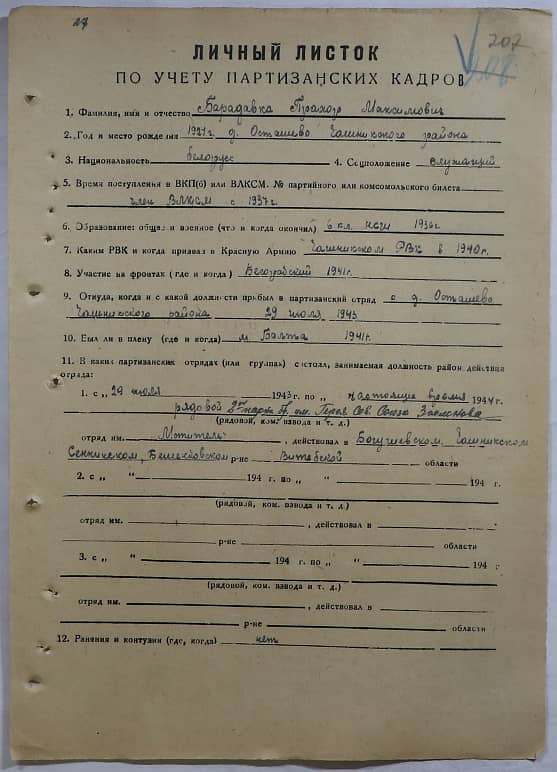 27
207
208
ЛИЧНЫЙ ЛИСТОК
ПО УЧЕТУ ПАРТИЗАНСКИХ КАДРОВ
1. Фамилия, имя и отчество Барадавка Прахор Максимович
2. Год и место рождения 1921г. д. Осташево Чашникского района
3. Национальность белорусс 4. Соцположение служащий
5. Время поступления в ВКП(б) или ВЛКСМ. № партийного или комсомольского билета
член ВЛКСМ с 1937г.
6. Образование: общая и военное (что и когда окончил) 6 кл. НСШ 1936г.
7. Каким РВК и когда призван в Красную Армию Чашникском РВК в 1940г.
8. Участие на фронтах (где и когда) 1941г.
9. Откуда, когда и с какой должности прибыл в партизанский отряд с д. Осташево
Чашникского района 29 июля 1943
10. Был ли в плену (где и когда) м Балта 1941г.
11. В каких партизанских отрядах (или группах) состоял, занимаемая должность район действия
отряда:
1. с „ 29 июля 1943 г. по „ настоящие время 1944 г.
рядовой 2й парт. бр. им. Героя Сов. Союза Заслонова
(рядовой, ком. взвода и т. д.)
отряд им. Мститель , действовал в Богушевском, Чашникском
Сенниском, Бешенковском р-не Витебской области
2. с „ “ 194 г. по „ “ 194 г.
(рядовой, ком. взвода и т. д.)
отряд им. , действовал в
р-не области
3. с „ “ 194 г. по „ “ 194 г
(рядовой, ком. взвода и т. д.)
отряд им. , действовал в
р-не области
12. Ранения и контузии (где, когда) нет